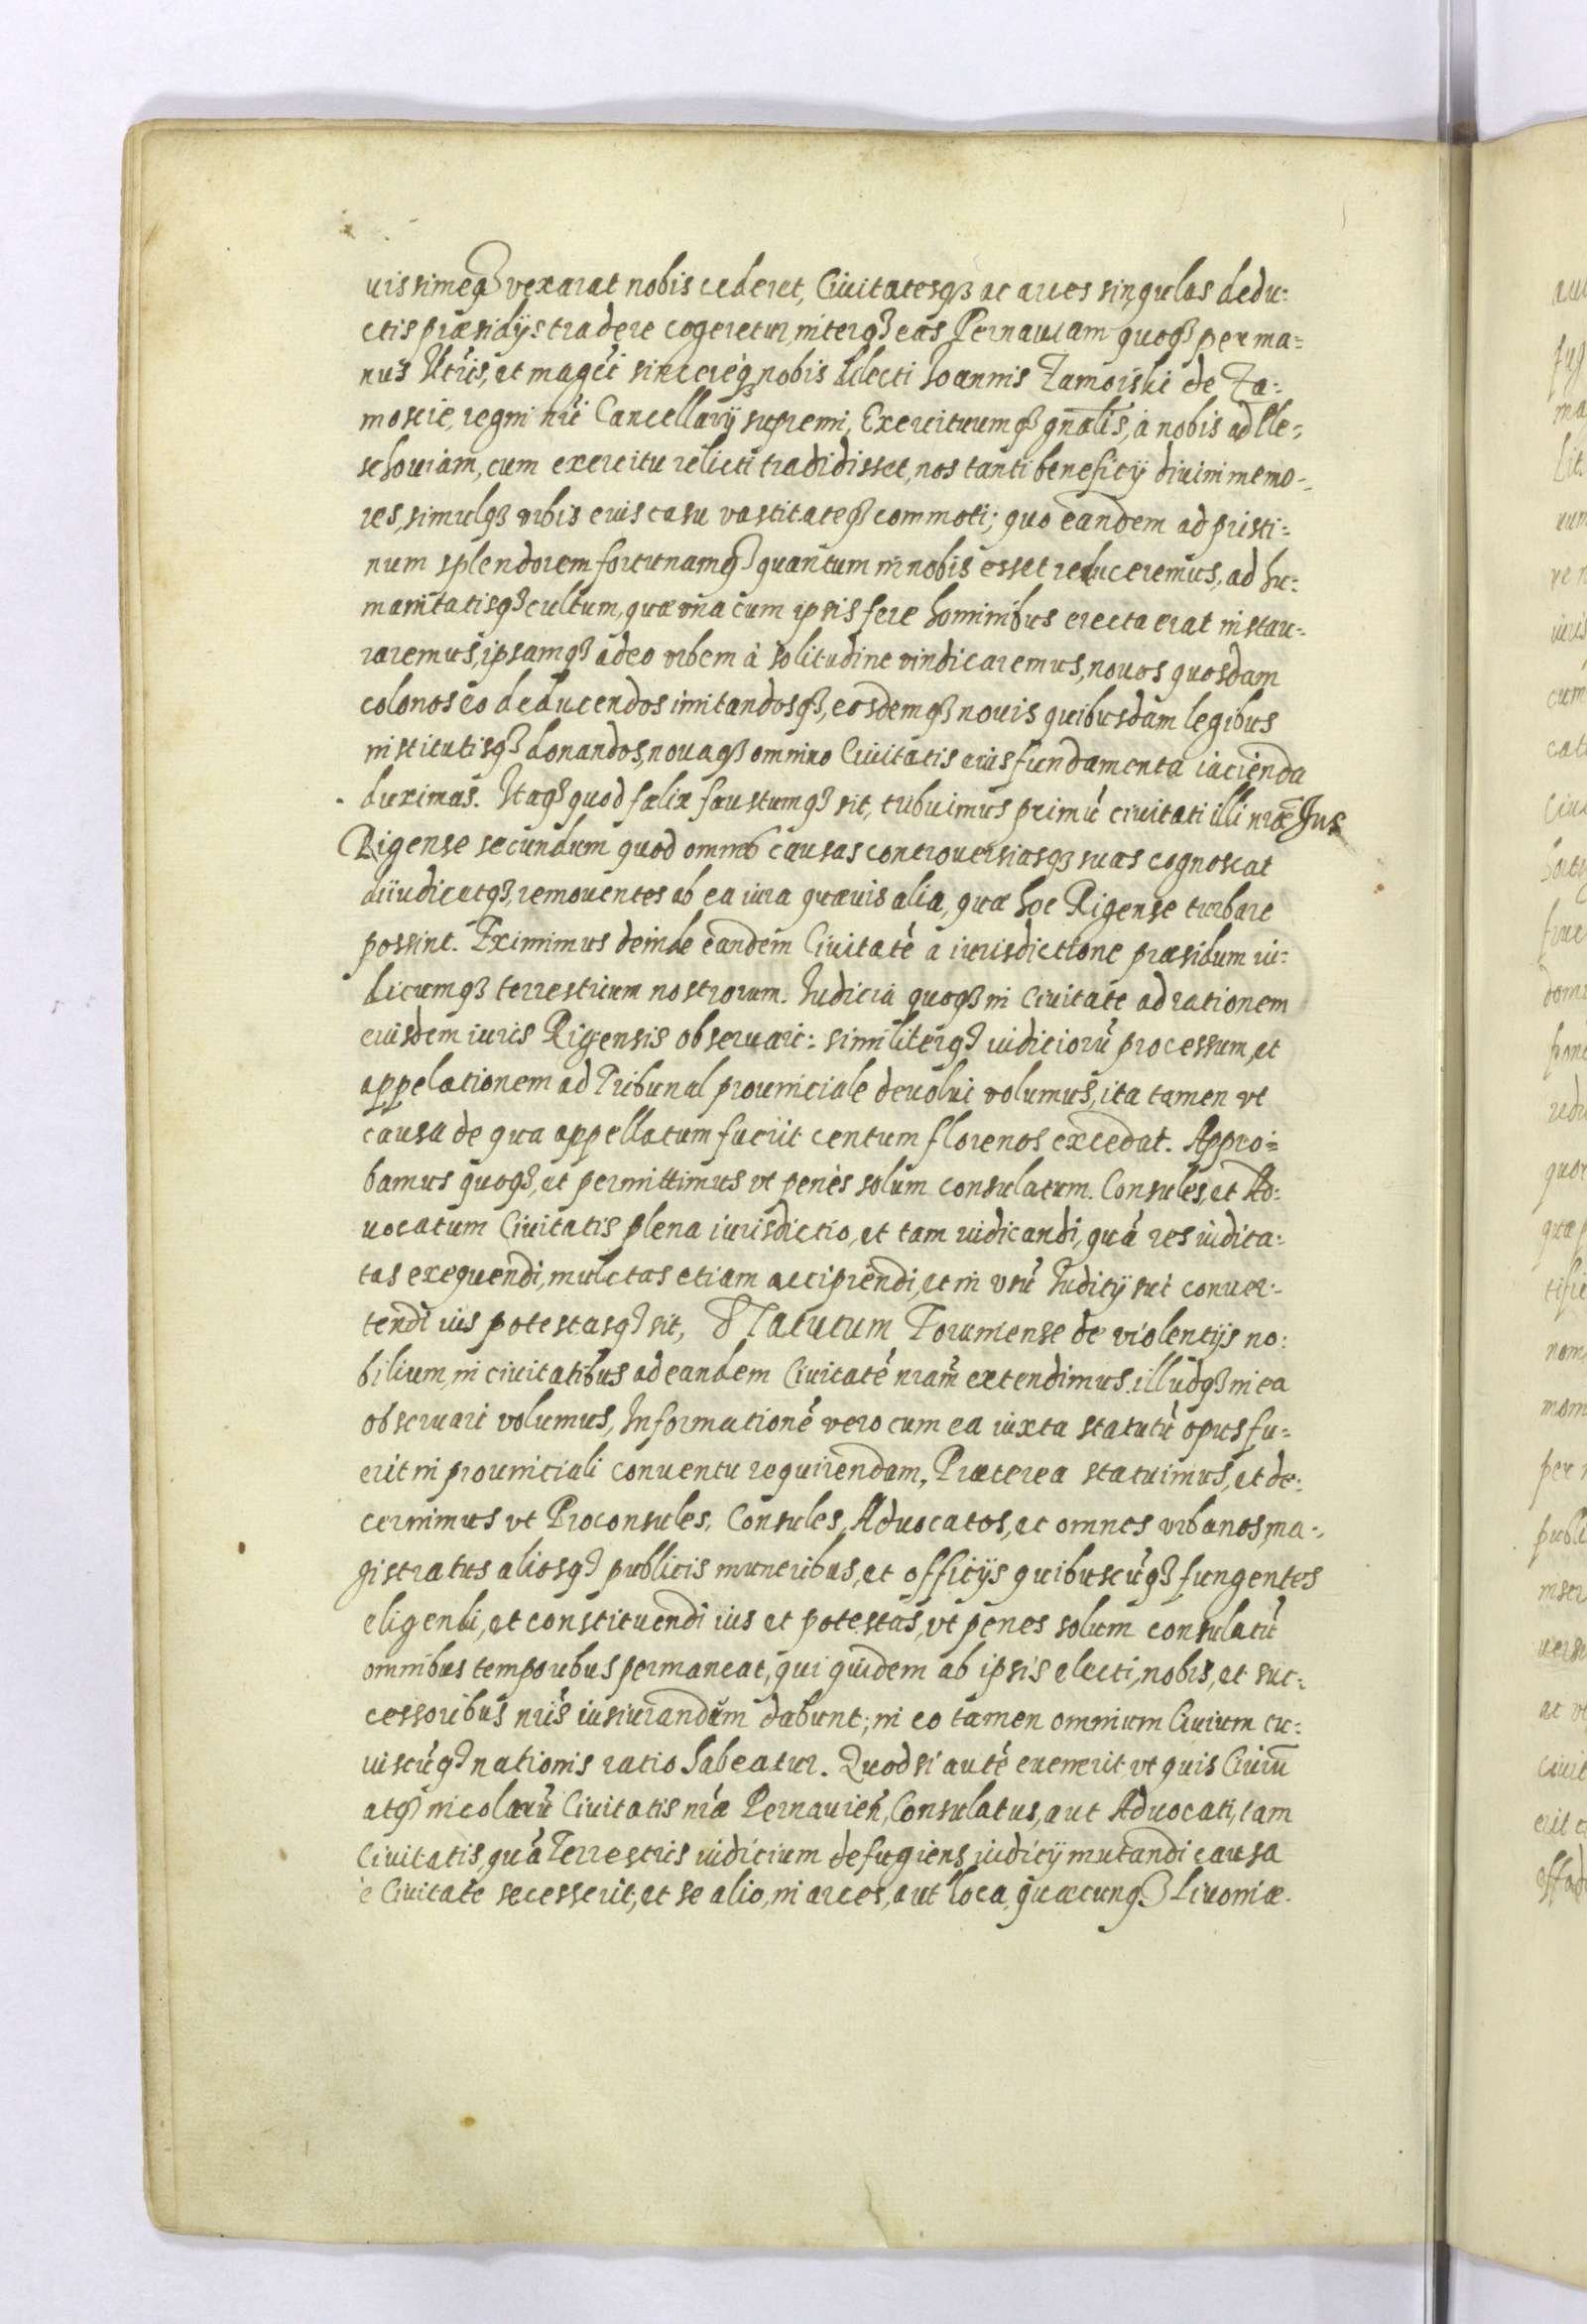 uissimeqȝ vexarat nobis cederet, Ciuitatesqȝ ac arces singulas dedu:
ctis præsidijs tradere cogeretur, interqȝ eas Pernauiam quoqȝ per ma:
nus Ill'ris, et mag'ci sincereqȝ nobis dilecti Ioannis Zamoiski de Za:
moscie, regni n'ri Cancellarij supremi, Exercituumqȝ gn̄alis, à nobis ad Ple:
schouiam, cum exercitu relicti tradidisset, nos tanti beneficij diuini memo:
res, simulqȝ vrbis eius casu vastitateqȝ commoti; quo eandem ad pristi:
num splendorem fortunamqȝ quantum in nobis esset reduceremus, ad hu:
manitatisqȝ cultum, quæ vna cum ipsis fere hominibus erecta erat instau:
raremus, ipsamqȝ adeo vrbem à solitudine vindicaremus, nouos quosdam
colonos eo deducendos inuitandosqȝ, eosdemqȝ nouis quibusdam legibus
institutisqȝ donandos, nouaqȝ omnino Ciuitatis eius fundamenta iacienda
duximas. Itaqȝ quod fælix faustumqȝ sit, tribuimus primū ciuitati illi nr̄æ Jus
Rigense secundum quod omnes causas controuersiasqȝ suas cognoscat
diiudicetqȝ, remouentes ab ea iura quæuis alia, quæ hoc Rigense turbare
possint. Eximimus deinde eandem Ciuitatē a iurisdictione præsidum iu:
dicumqȝ terrestrium nostrorum. Iudicia quoqȝ in Ciuitate ad rationem
eiusdem iuris Rigensis obseruari: similiterqȝ iudiciorū processum, et
appelationem ad Tribunal prouinciale deuolui volumus, ita tamen vt
causa de qua appellatum fuerit centum florenos excedat. Appro:
bamus quoqȝ, et permittimus vt penès solum consulatum. Consules, et Ad:
uocatum Ciuitatis plena iurisdictio, et tam iudicandi, quā res iudica:
tas exequendi, mulctas etiam accipiendi, et in vsū Iudicij sui conuer:
tendi ius potestasqȝ sit, Statutum Toruniense de violentijs no:
bilium, in ciuitatibus ad eandem Ciuitatē nram̄ extendimus, illudqȝ in ea
obseruari volumus, Informationē vero cum ea iuxta statutū opus fu:
erit in prouinciali conuentu requirendam, Præterea statuimus, et de:
cernimus vt Proconsules, Consules, Aduocatos, ac omnes vrbanos, ma:
gistratus aliosqȝ publicis muneribus, et officijs quibuscūqȝ fungentes
eligendi, et constituendi ius et potestas, vt penes solum consulatū
omnibus temporibus permaneat, qui quidem ab ipsis electi, nobis, et suc:
cessoribus nr̄is iusiurandum dabunt; in eo tamen omnium Ciuium cu:
iuscūqȝ nationis ratio habeatur. Quod si autē euenerit vt quis Ciuiū
atqȝ incolarū Ciuitatis nr̄æ Pernauień, Consulatus, aut Aduocati, tam
Ciuitatis, quā Terrestris iudicium defugiens, iudicij mutandi causa
è Ciuitate secesserit, et se alio, in arces, aut loca quæcunqȝ Liuoniæ.